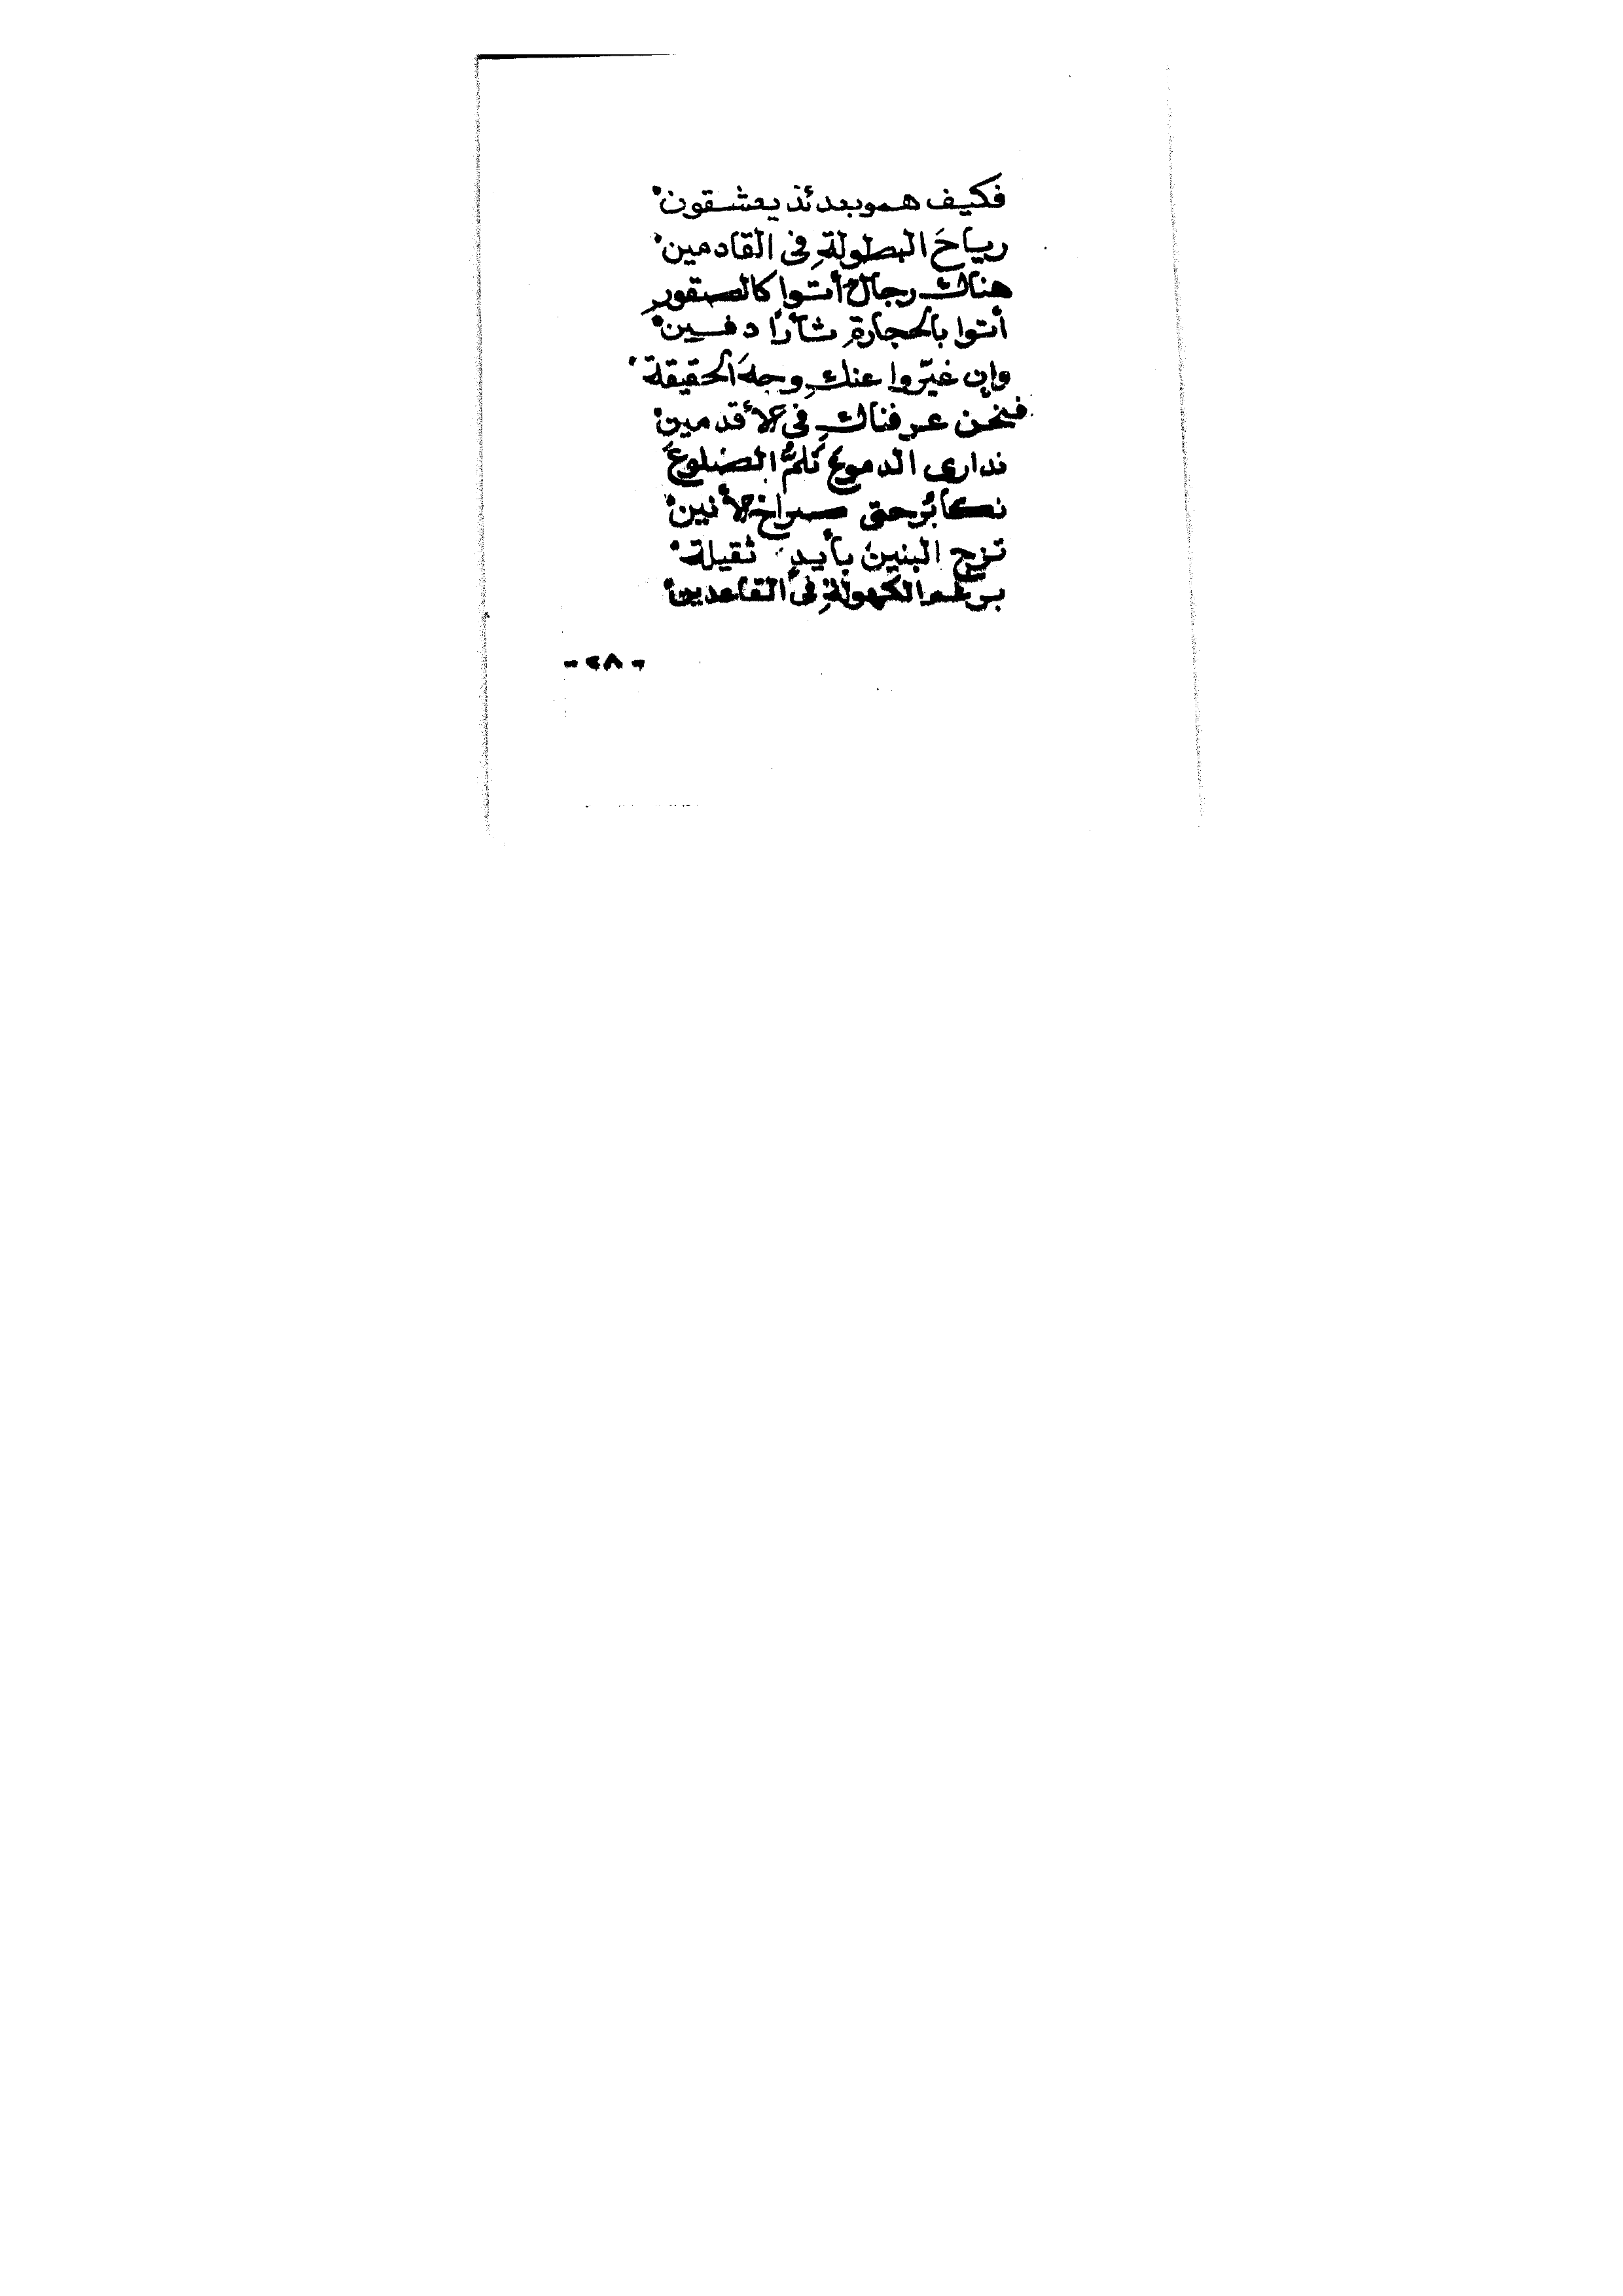 فكيف همو بعدئذ يعشقون
رياحَ البطولةِ في القادمين
هناك رجالٌ أتوا كالصقورِ
أتوا بالحجارةِ ثأرًا دفين
وإن غيّروا عنكِ وجهَ الحقيقة
فنحن عرفناكِ في الأقدمين
نداري الدموعَ نلمُّ الضلوعَ
نكابرُ حتى صراخ الأنين
تزج البنين بأيدٍ ثقيلة
برغم الكهولةِ في القاعدين
- ٢٨ -